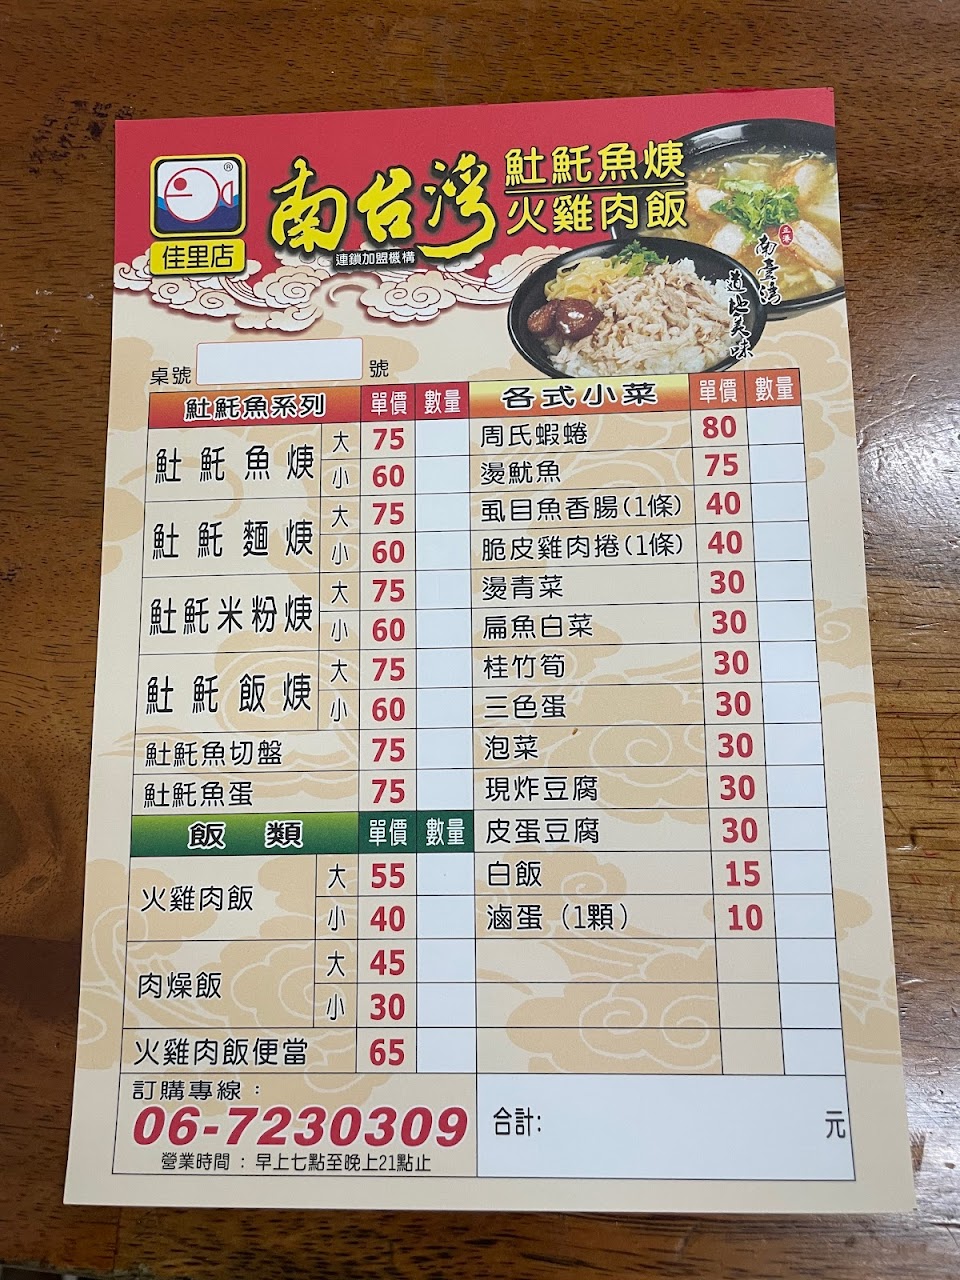 ®
佳里店
南台灣
連鎖加盟機構
𩵚魠魚焿
火雞肉飯
正港
南臺灣
道地美味
桌號 號
𩵚魠魚系列 單價 數量
𩵚魠魚焿 大 75
小 60
𩵚魠麵焿 大 75
小 60
𩵚魠米粉焿 大 75
小 60
𩵚魠飯焿 大 75
小 60
𩵚魠魚切盤 75
𩵚魠魚蛋 75
飯類 單價 數量
火雞肉飯 大 55
小 40
肉燥飯 大 45
小 30
火雞肉飯便當 65
訂購專線：
06-7230309
營業時間：早上七點至晚上21點止
各式小菜 單價 數量
周氏蝦蜷 80
燙魷魚 75
虱目魚香腸(1條) 40
脆皮雞肉捲(1條) 40
燙青菜 30
扁魚白菜 30
桂竹筍 30
三色蛋 30
泡菜 30
現炸豆腐 30
皮蛋豆腐 30
白飯 15
滷蛋（1顆） 10
合計: 元